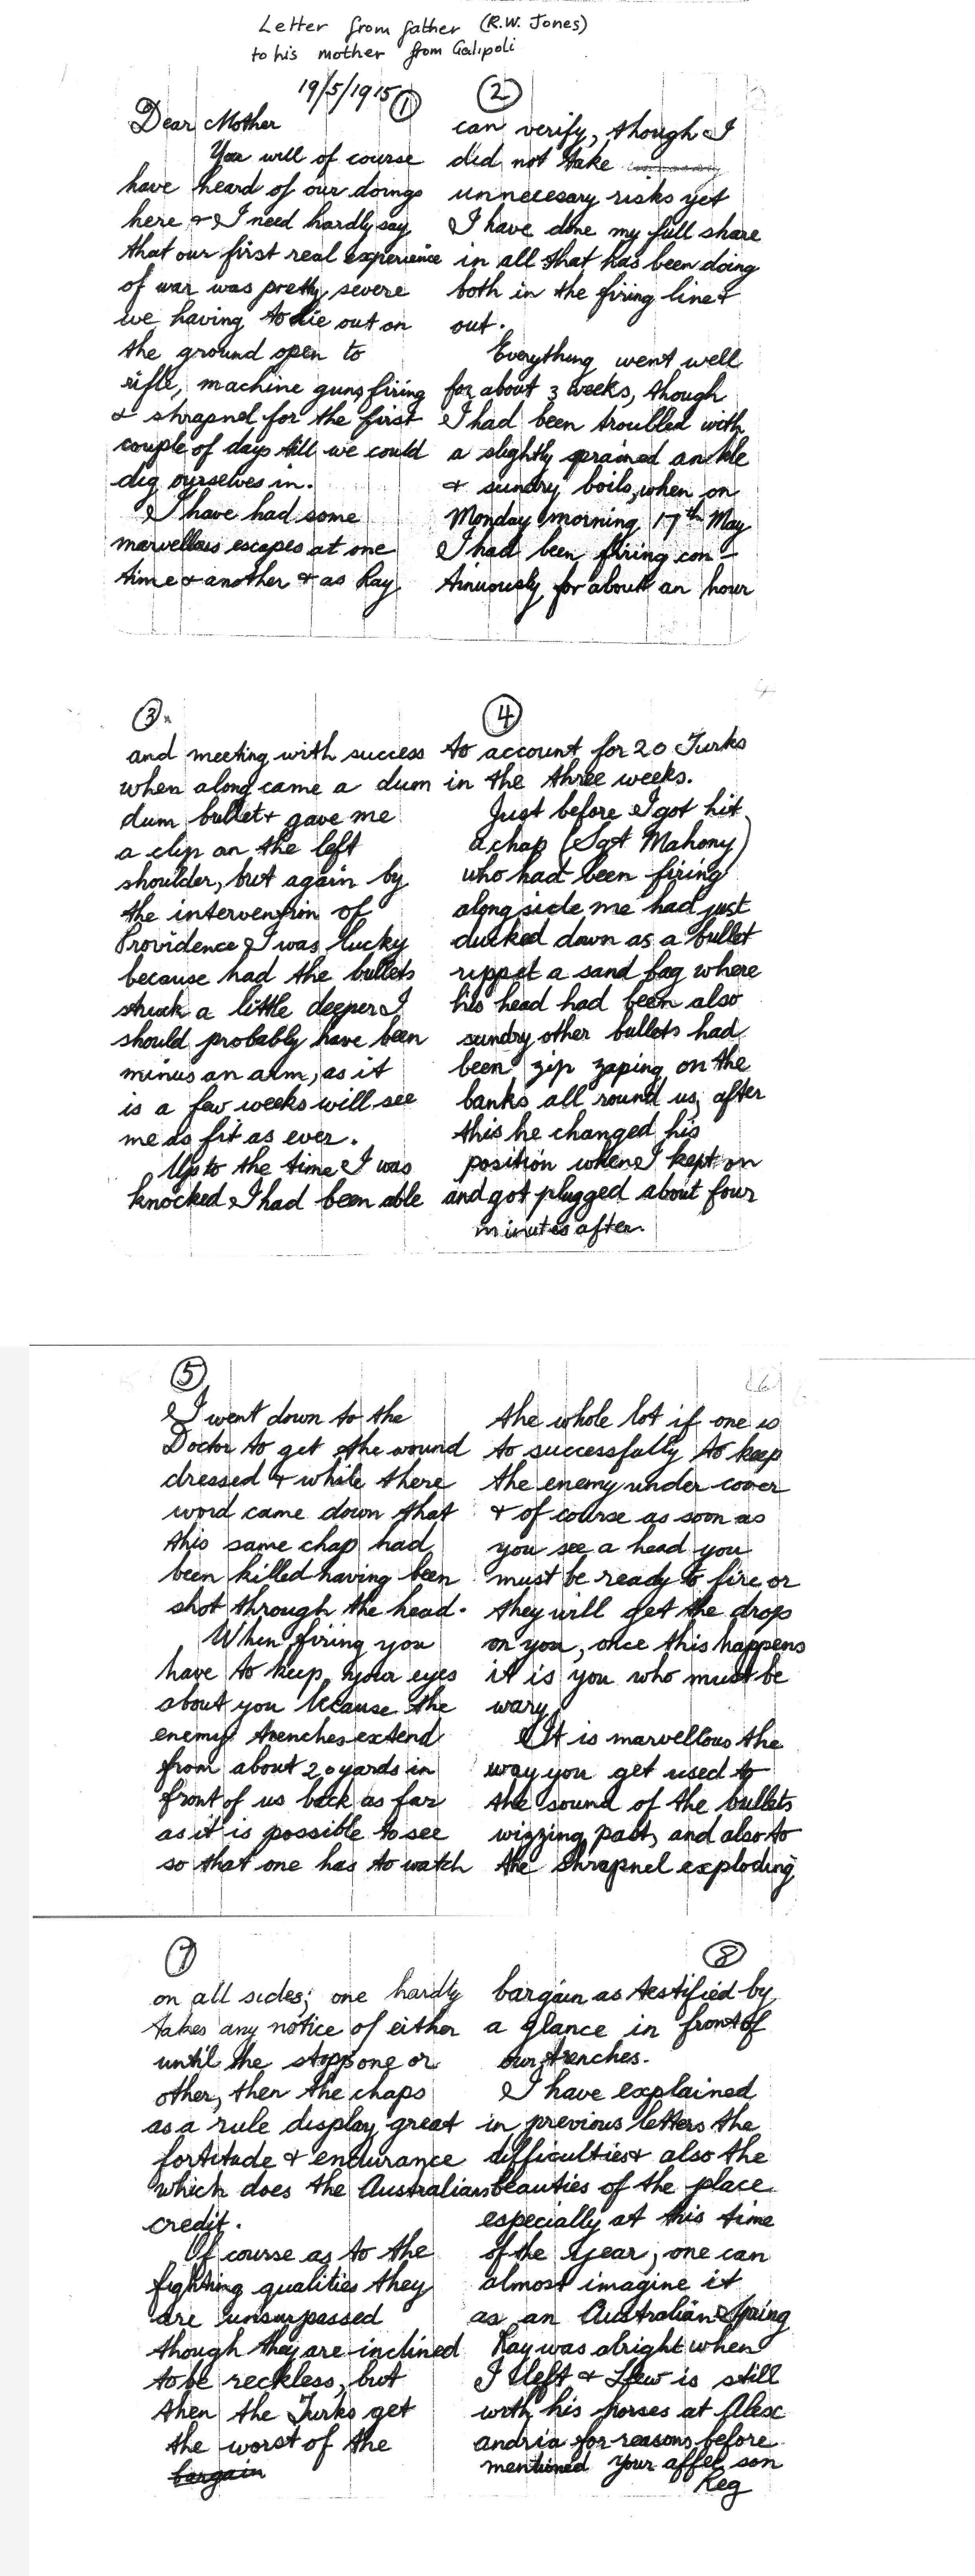 Letter from father (R.W. Jones)
to his mother from Galipoli
19/5/1915
①
Dear Mother
You will of course
have heard of our doings
here & I need hardly say
that our first real experience
of war was pretty severe
we having to lie out on
the ground open to
rifle, machine guns firing
& shrapnel for the first
couple of days till we could
dig ourselves in.
I have had some
marvellous escapes at one
time & another & as Ray
②
can verify, though I
did not take
unnecesary risks yet
I have done my full share
in all that has been doing
both in the firing line &
out.
Everything went well
for about 3 weeks, though
I had been troubled with
a slightly sprained ankle
& sundry boils, when on
Monday morning 17th May
I had been firing con-
tinuously for about an hour
③
and meeting with success
when along came a dum
dum bullet & gave me
a clip on the left
shoulder, but again by
the intervention of
Providence I was lucky
because had the bullets
struck a little deeper I
should probably have been
minus an arm, as it
is a few weeks will see
me as fit as ever.
Up to the time I was
knocked I had been able
④
to account for 20 Turks
in the three weeks.
Just before I got hit
a chap (Sgt Mahony)
who had been firing
alongside me had just
ducked down as a bullet
rippet a sand bag where
his head had been also
sundry other bullets had
been zip zaping on the
banks all round us, after
this he changed his
position when I kept on
and got plugged about four
minutes after.
⑤
I went down to the
Doctor to get the wound
dressed & while there
word came down that
this same chap had
been killed having been
shot through the head.
When firing you
have to keep your eyes
about you because the
enemy trenches extend
from about 20 yards in
front of us back as far
as it is possible to see
so that one has to watch
6
the whole lot if one is
to successfully to keep
the enemy under cover
& of course as soon as
you see a head you
must be ready to fire or
they will get the drop
on you, once this happens
it is you who must be
wary.
It is marvellous the
way you get used to
the sound of the bullets
wizzing past, and also to
the shrapnel exploding
⑦
on all sides; one hardly
takes any notice of either
until the stopp one or
other, then the chaps
as a rule display great
fortitude & endurance
which does the Australians
credit.
Of course as to the
fighting qualities they
are unsurpassed
though they are inclined
to be reckless, but
then the Turks get
the worst of the
bargain
⑧
bargain as testified by
a glance in front of
our trenches.
I have explained
in previous letters the
difficulties & also the
beauties of the place
especially at this time
of the year, one can
almost imagine it
as an Australian Spring
Ray was alright when
I left & Lew is still
with his horses at Alexc
andria for reasons before
mentioned Your affec son
Reg